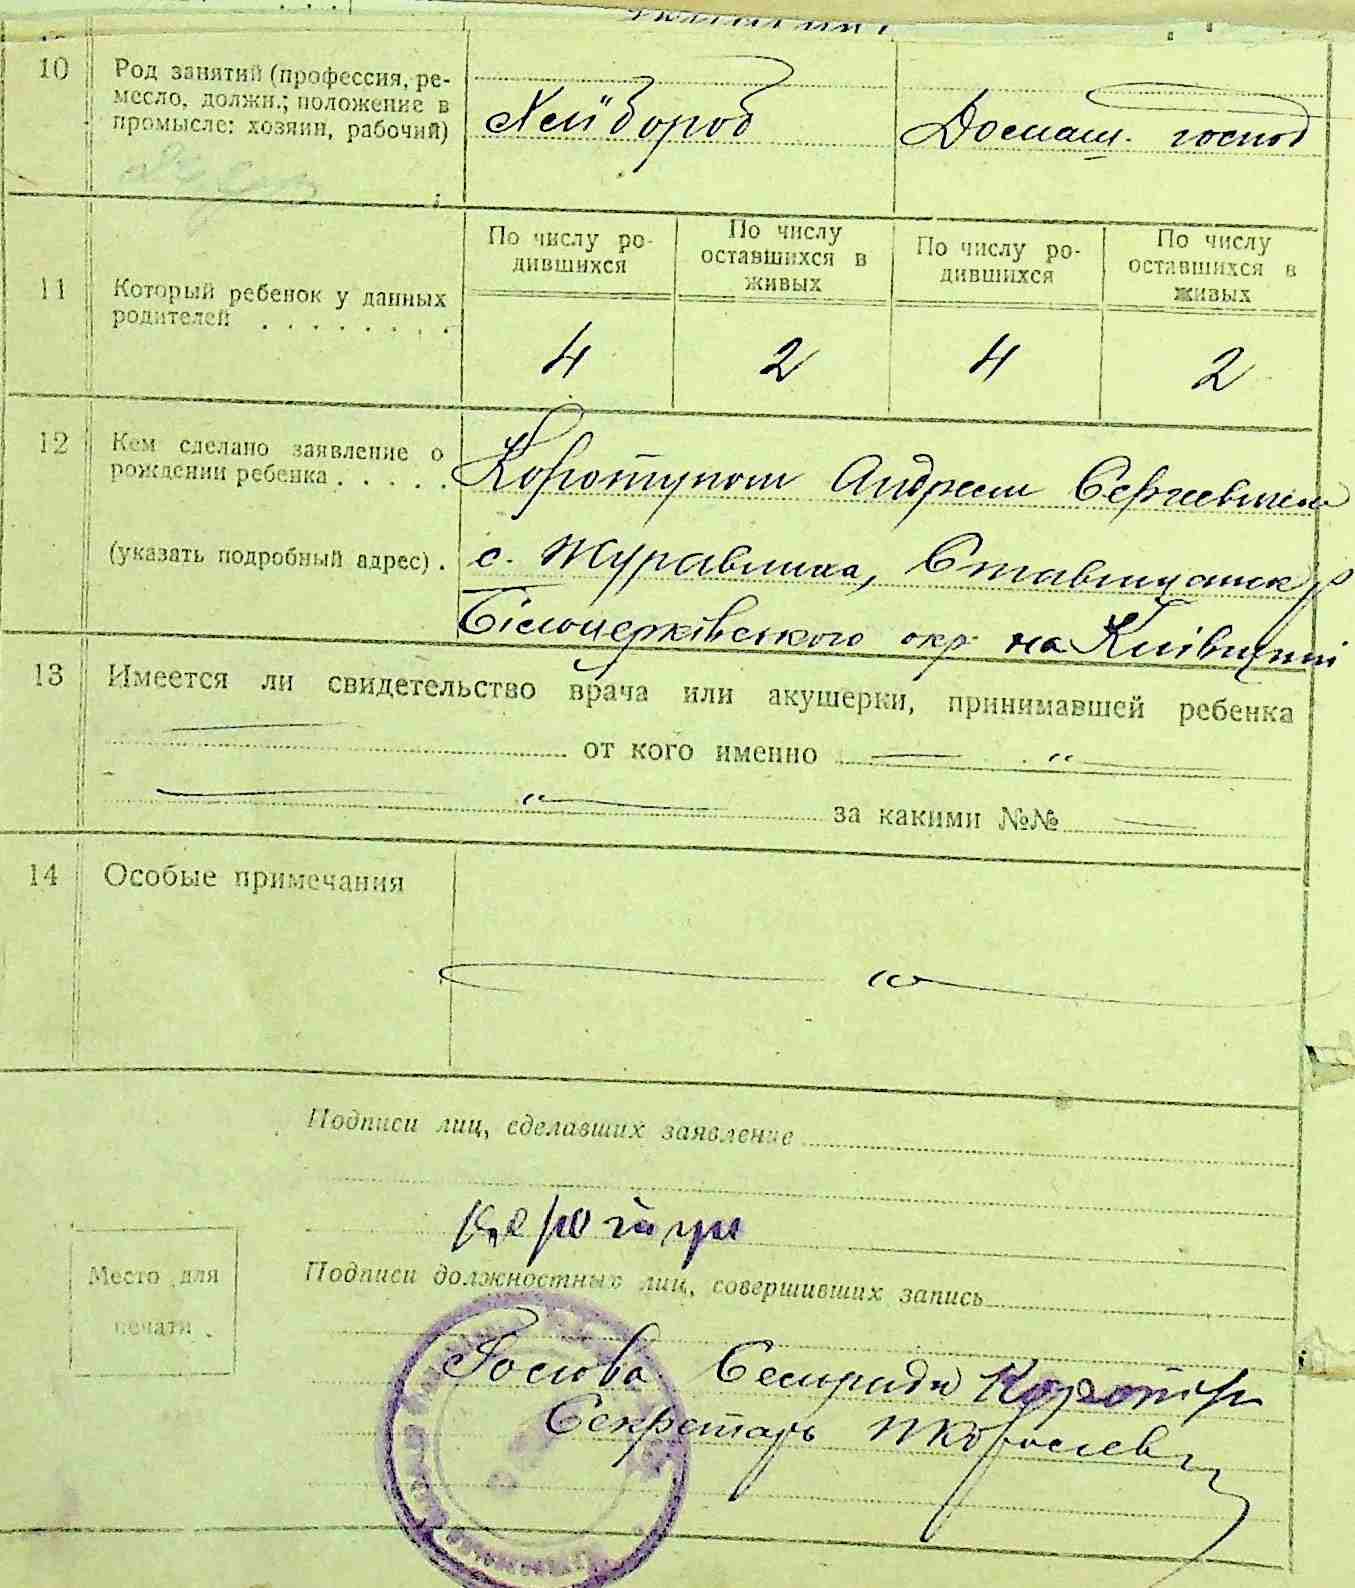 10
Род занятий (профессия, ре-
месло, должн.; положение в
промысле: хозяин, рабочий)
Хлібороб
Домаш. господ
11
Который ребенок у данных
родителей . . . . . . . .
По числу ро-
дившихся
По числу
оставшихся в
живых
По числу ро-
дившихся
По числу
оставшихся в
живых
4
2
4
2
12
Кем сделано заявление о
рождении ребенка . . . . .
(указать подробный адрес) .
Коротуном Андреем Сергеевичем
с. Журавлиха, Ставищанск р
Білоцерківського окр на Київщині
13
Имеется ли свидетельство врача или акушерки, принимавшей ребенка
— от кого именно — "
— " — за какими №№ —
14
Особые примечания
— " —
Подписи лиц, сделавших заявление
Коротун
Место для
печати.
Подписи должностных лиц, совершивших запись
Голова Сельради Коротун
Секретарь